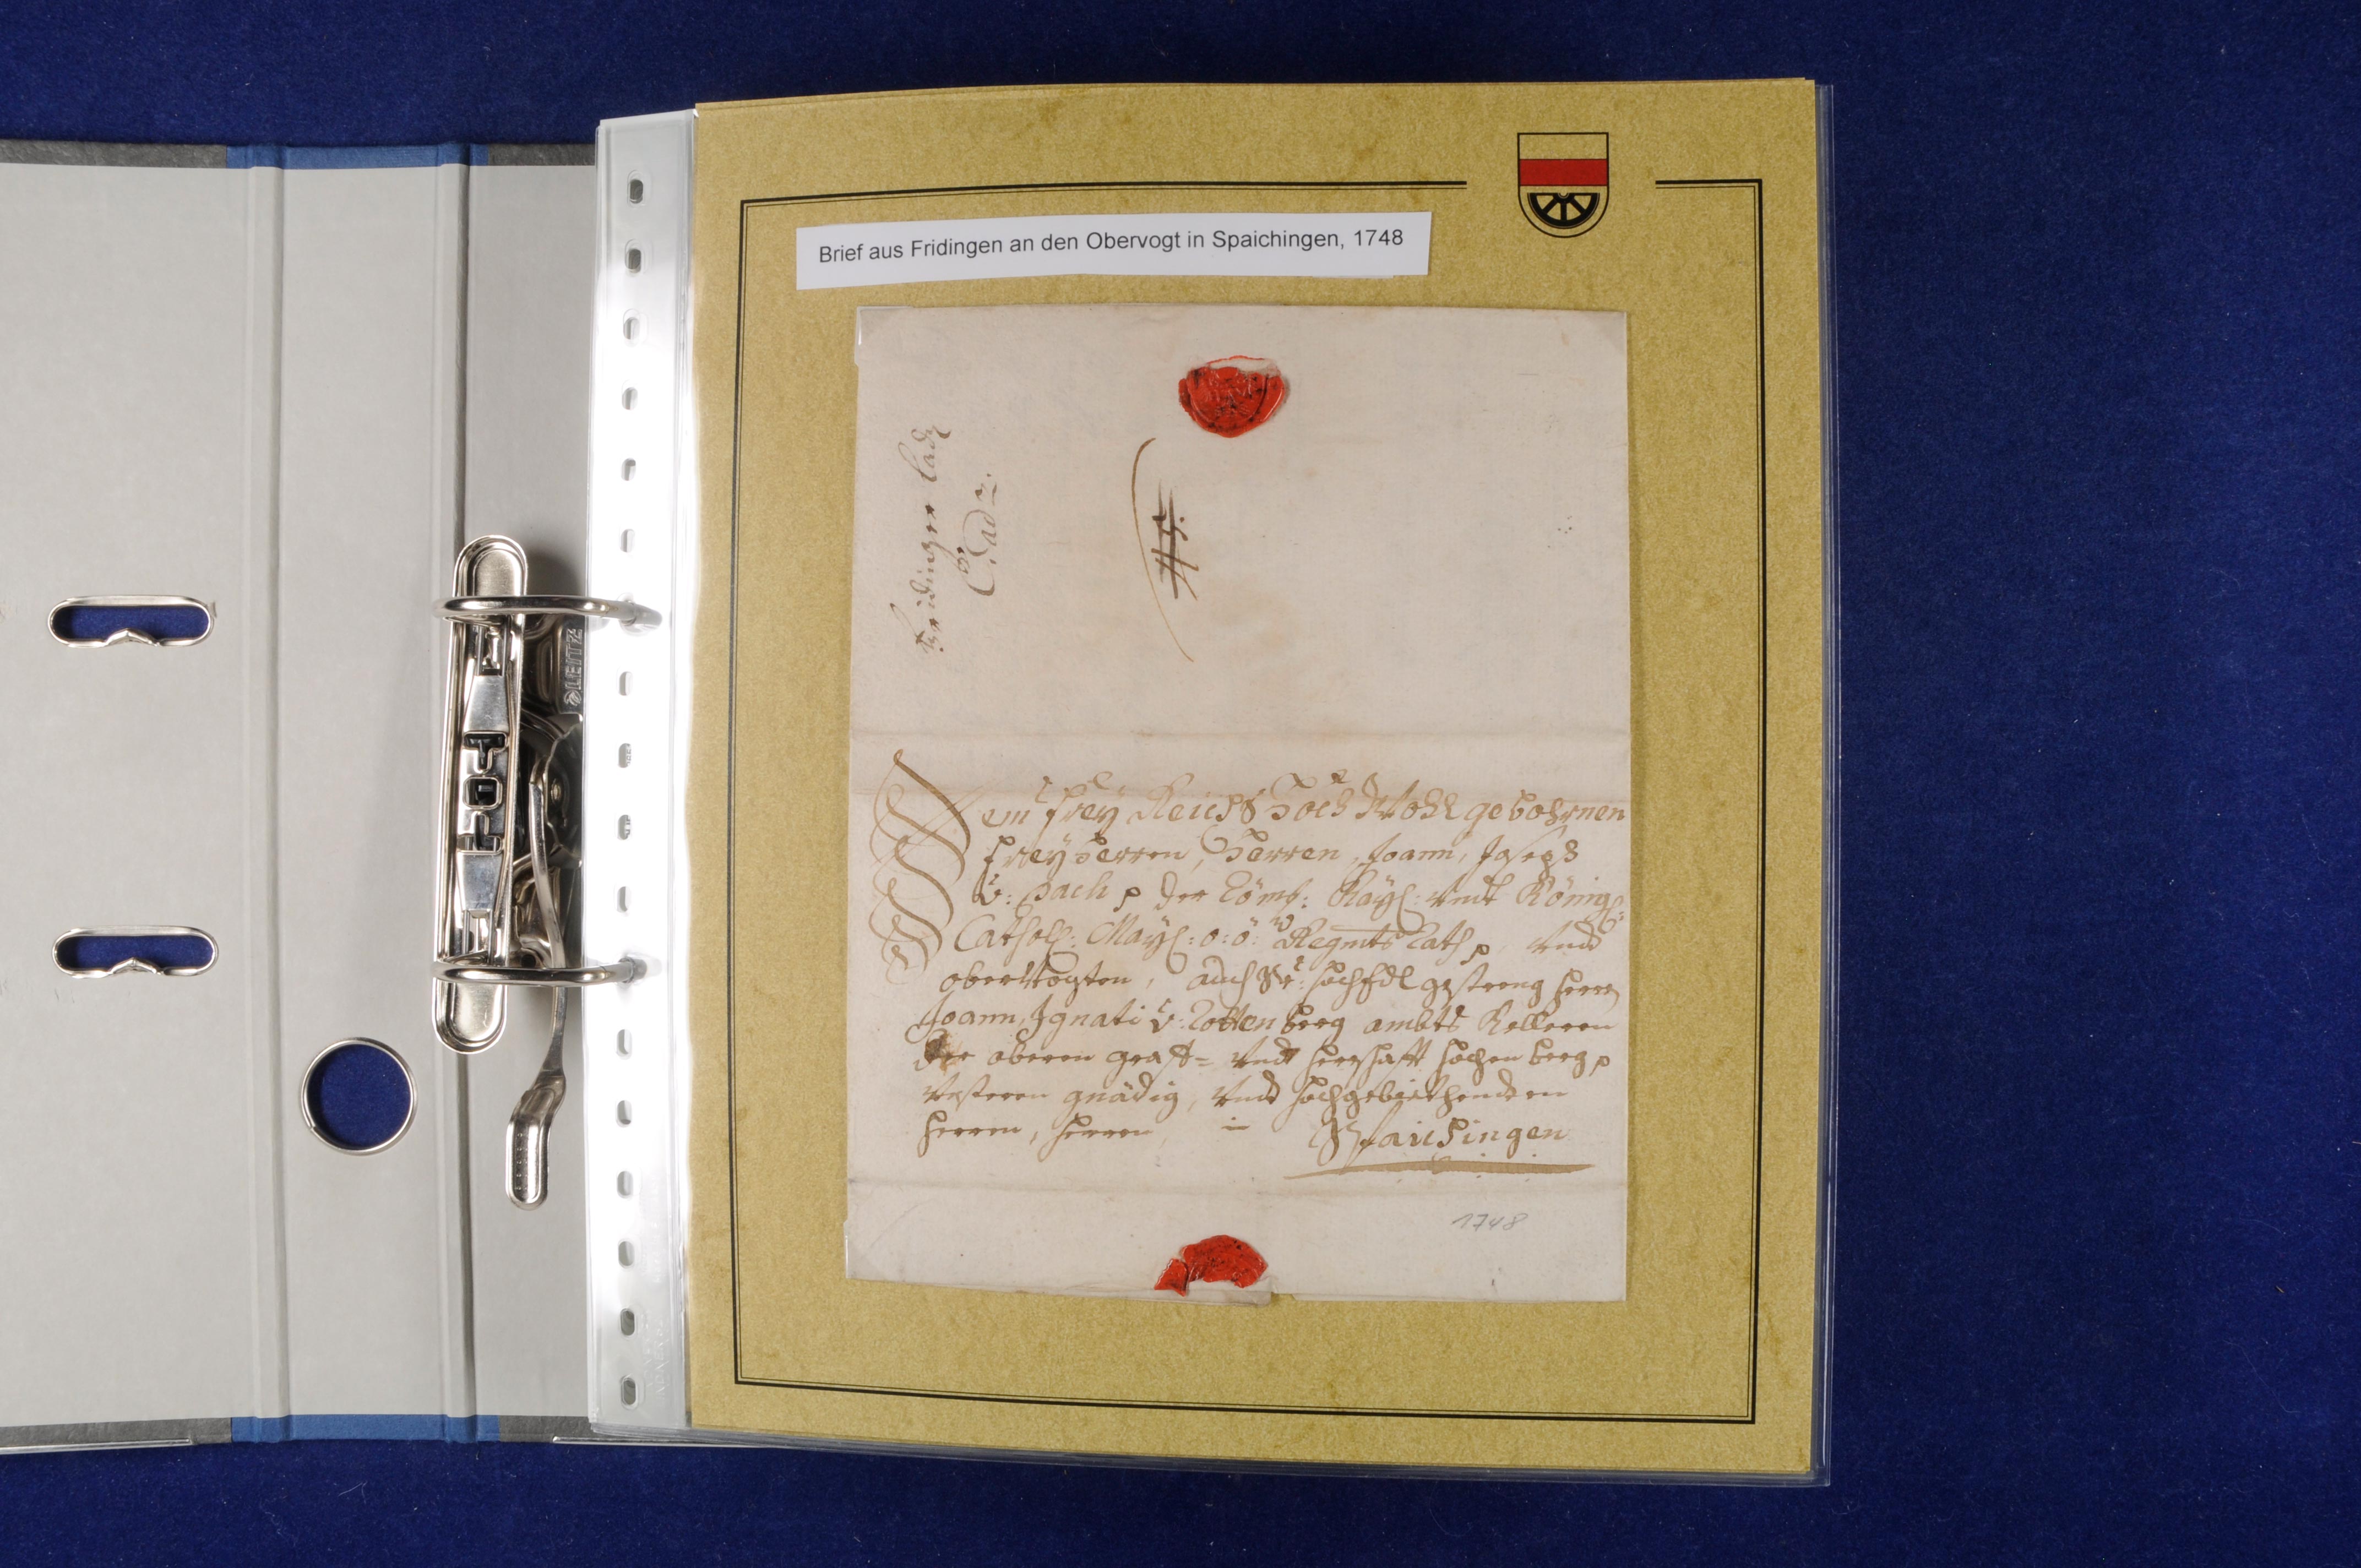 Brief aus Fridingen an den Obervogt in Spaichingen, 1748
Fridinger
Dem frey Reichs Hoch Wohl gebohrnen
freyherren, Herren, Joann, Joseph
v: Bach p der Römb: Kayß: undt Königß:
Cathoß: Mayß: o: ö: Regmts Rath p, undt
obervogten, auch gestreng herrn
Joann, Ignati v: Rottenberg ambts Kelleren
der oberen graff= undt herrschafft hochenberg p
Unseren gnädig, undt hochgebiethenden
herren, herren, in Spaichingen
1748
LEITZ
LEITZ